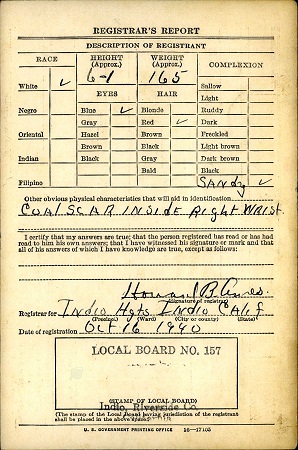 REGISTRAR'S REPORT
DESCRIPTION OF REGISTRANT
RACE
HEIGHT (Approx.)
WEIGHT (Approx.)
COMPLEXION
White ✓
6-1
165
Sallow
EYES
HAIR
Light
Negro
Blue ✓
Blonde
Ruddy
Gray
Red ✓
Dark
Oriental
Hazel
Brown
Freckled
Brown
Black
Light brown
Indian
Black
Gray
Dark brown
Bald
Black
Filipino
SANdy ✓
Other obvious physical characteristics that will aid in identification
COAL SCAR INSIDE Right WRIST.
I certify that my answers are true; that the person registered has read or has had
read to him his own answers; that I have witnessed his signature or mark and that
all of his answers of which I have knowledge are true, except as follows:
Howard B.
(Signature of registrar)
Registrar for Indio Hgts Indio Calif
(Precinct) (Ward) (City or county) (State)
Date of registration Oct 16 1940
LOCAL BOARD NO. 157
(STAMP OF LOCAL BOARD)
Indio, Riverside Co
(The stamp of the Local Board having jurisdiction of the registrant
shall be placed in the above space.)
U. S. GOVERNMENT PRINTING OFFICE 16—17105